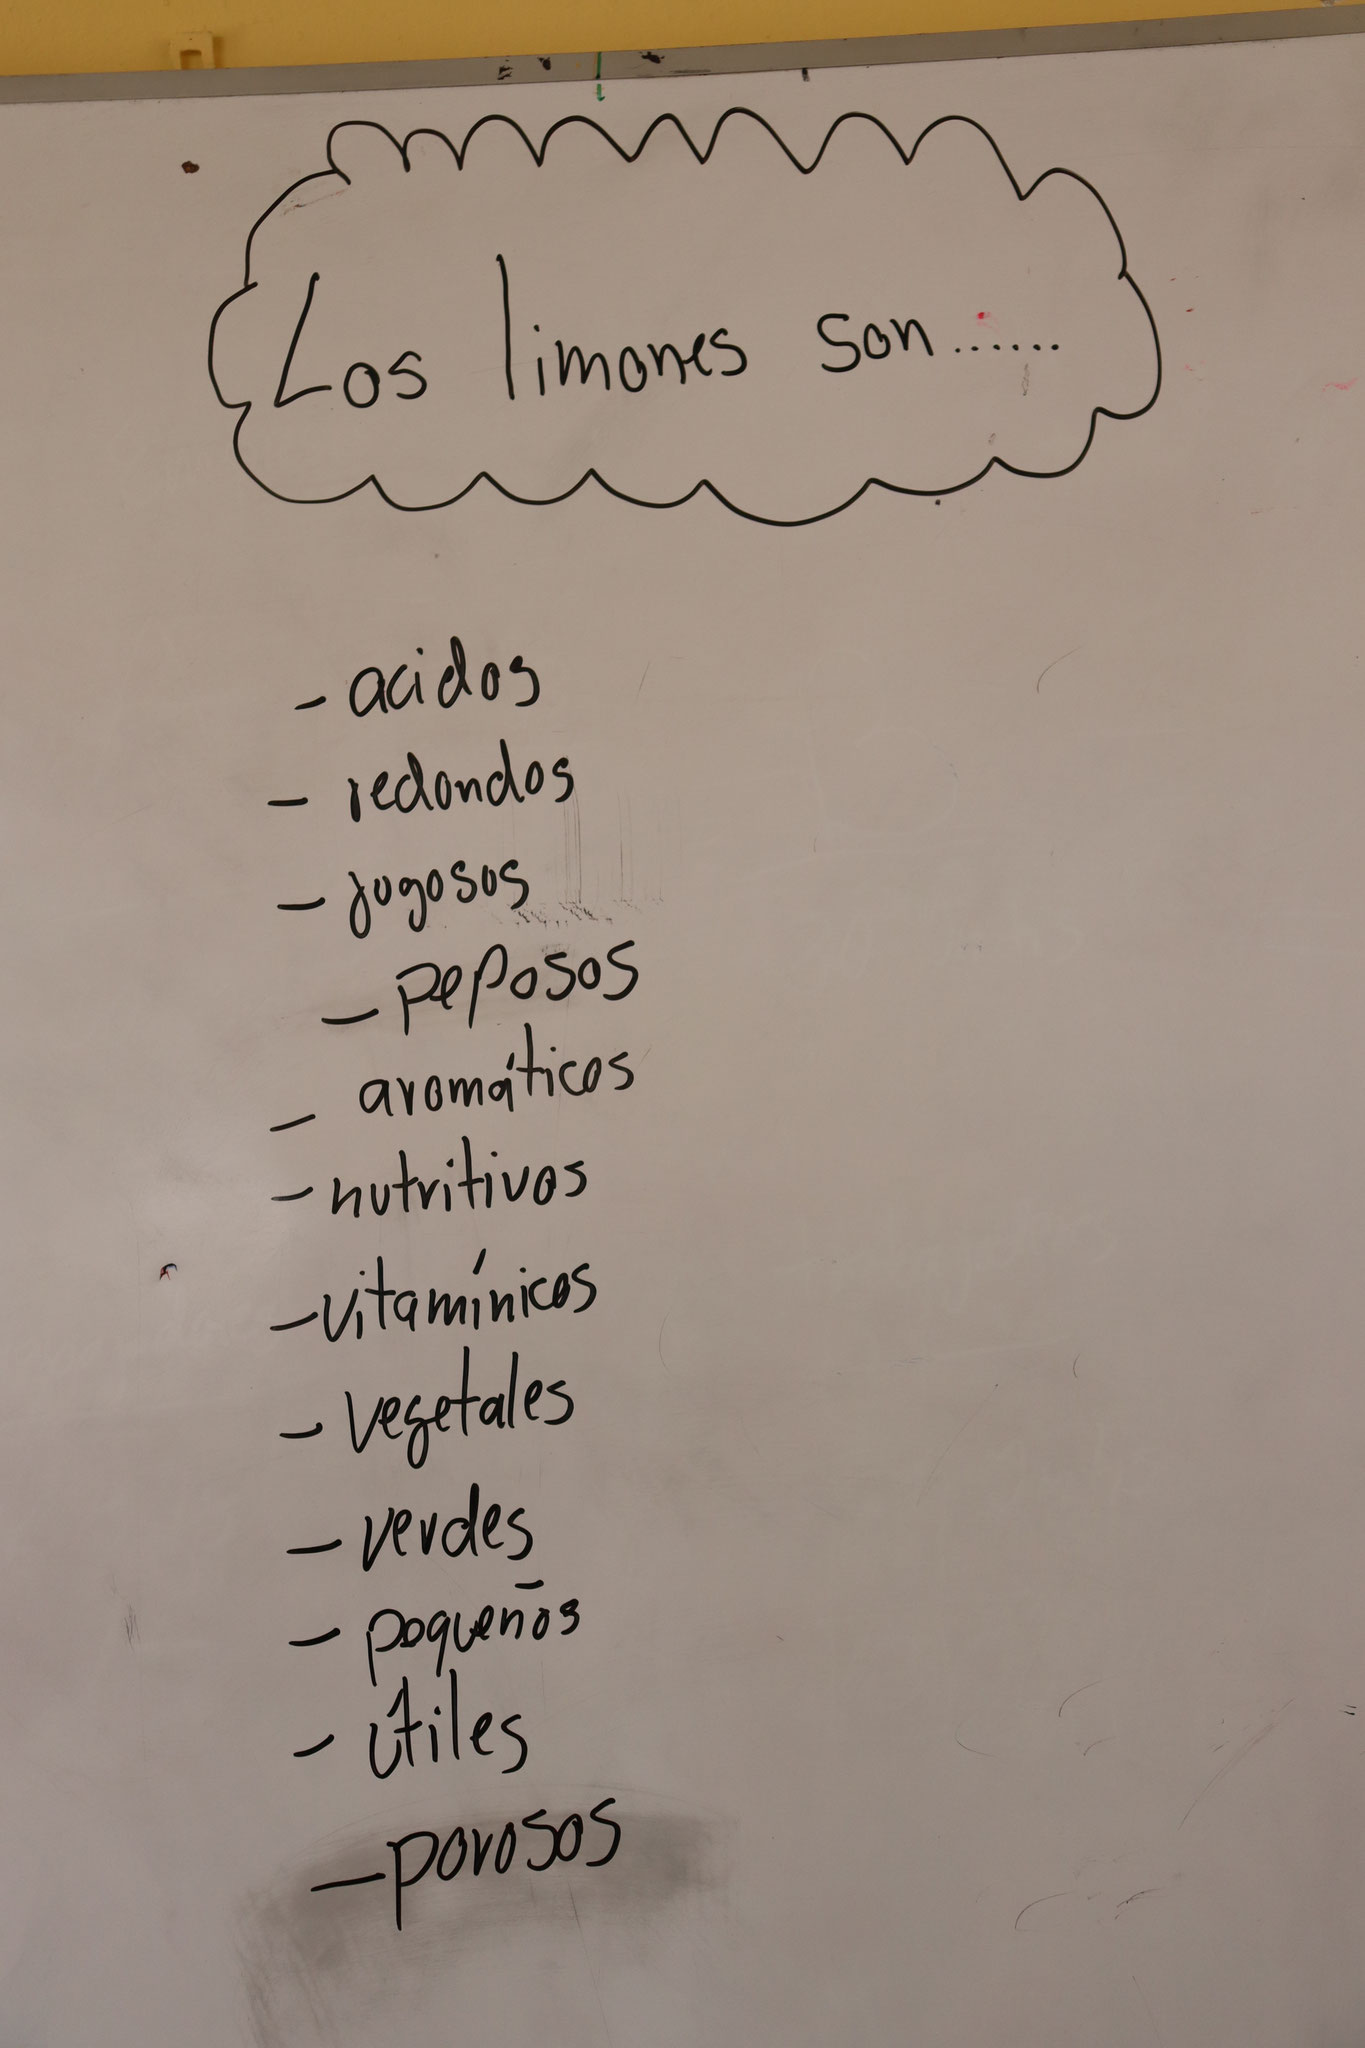 Los limones son......
- acidos
- redondos
- jugosos
- peposos
- aromáticos
- nutritivos
- vitamínicos
- vegetales
- verdes
- pequeños
- útiles
- porosos